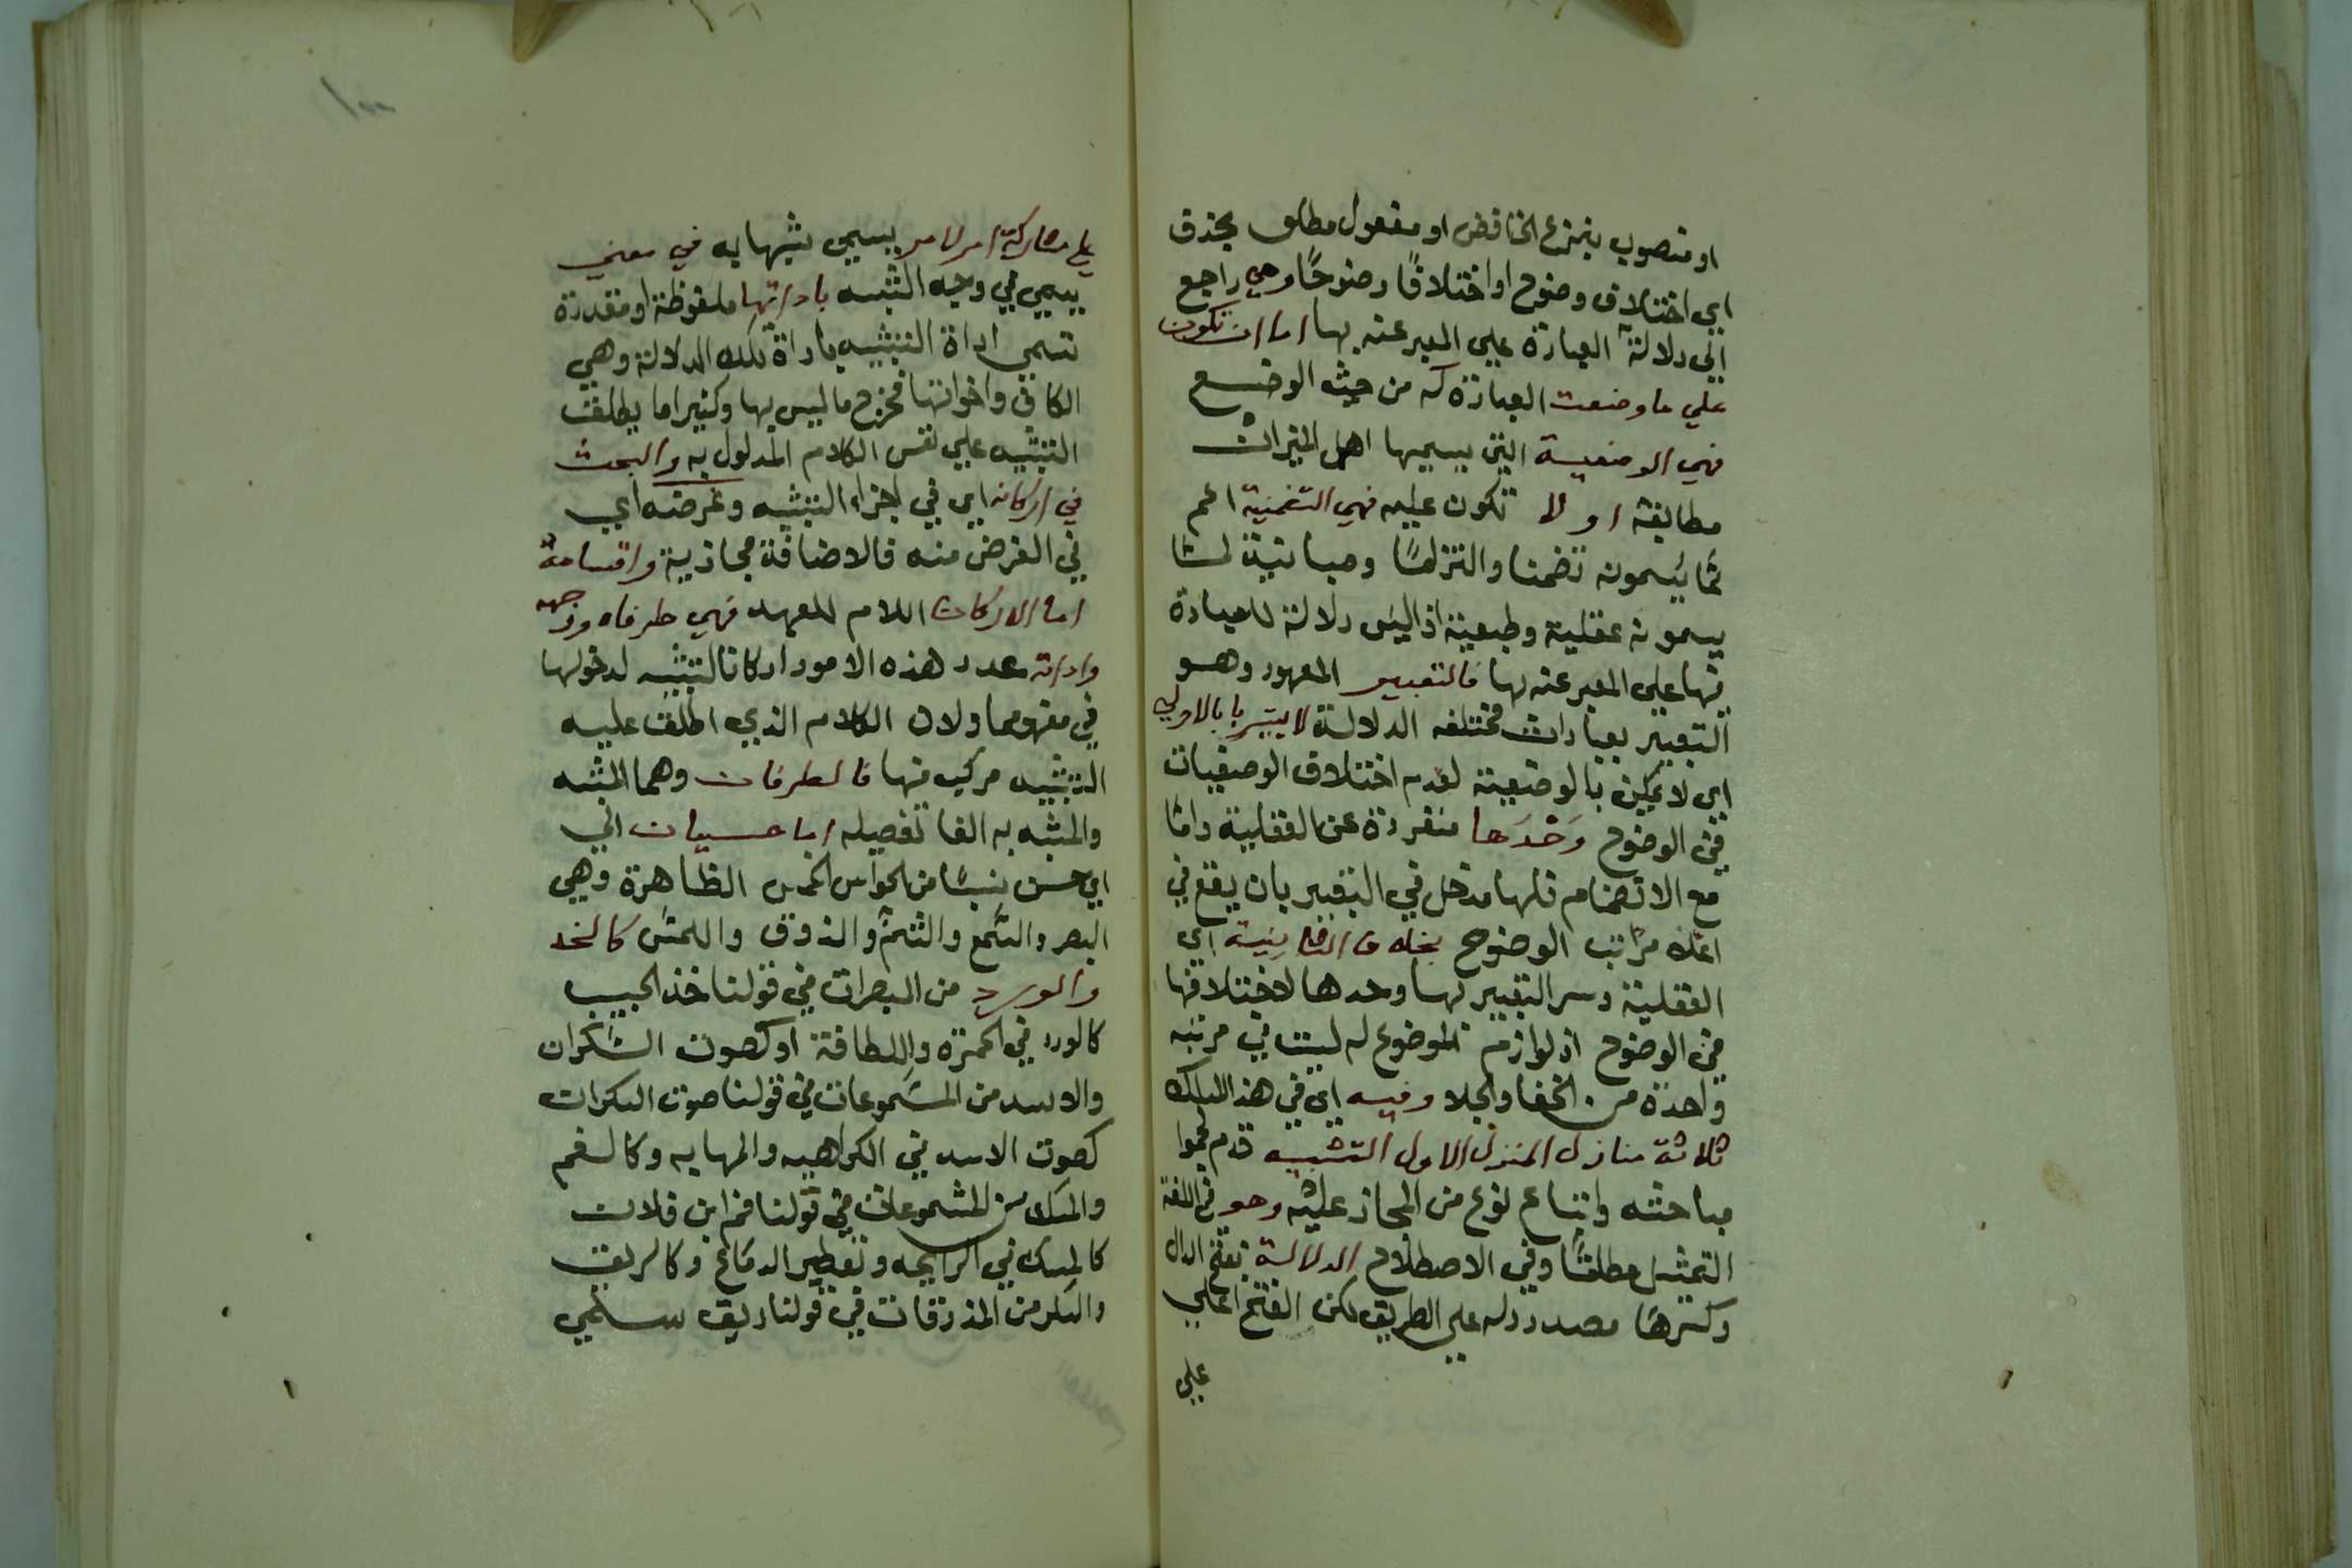 او منصوب بنزع الخافض او مفعول مطلق بحذف
اي اختلاف وضوح او اختلافًا وضوحًا وهي راجع
الي دلالة العبارة علي المعبر عنه بها اما ان تكون
علي ما وضعت العبارة له من حيث الوضع
فهي الوضعية التي يسميها اهل الميزان
مطابقة او لا تكون عليه فهي اعم
مما يسمونه تضمنا والتزامًا ومباينة لما
يسمونه عقلية وطبعية اذ اليس دلالة للعبارة
فيها علي المعبر عنه بها فالتعبير المعهود وهو
التعبير بعبارات مختلفه الدلالة لا يتيسر بالاولي
اي لا يمكن بالوضعية لعدم اختلاف الوضعيات
في الوضوح وَحْدَها منفردة عن العقلية واما
مع الانضمام فلها مدخل في التعبير بان يقع في
اعلا مراتب الوضوح بخلاف الثانِيَة اي
العقلية وسر التعبير بها وحدها لاختلافها
في الوضوح اذ لوازم الموضوع له ليست في مرتبه
واحدة من الخفا والجلا وفيه اي في هذا المسلك
ثلاثة منازل المنزل الاول التشبيه قدم
مباحثه وابتناء نوع من المجاز عليه وهو في اللغة
التمثيل مطلقًا وفي الاصطلاح الدلالة بفتح الدال
وكسرها مصدر دله علي الطريق لكن الفتح اعلي
علي
علي مشاركة امر لامر يسمي مشبها به في معني
يسمي في وجه الشبه باداتها ملفوظة او مقدرة
تسمي اداة التشبيه باداة تلك الدلالة وهي
الكاف واخواتها فخرج ما ليس بها وكثيرا ما يطلق
التشبيه علي نفس الكلام المدلول به والبحث
في اركانه اي في اجزاء التشبيه وغرضه اي
في الغرض منه فالاضافة مجازية واقسامه
اما الاركان اللام للعهد فهي طرفاه ووجهه
واداته عدد هذه الامور اركانا للتشبيه لدخولها
في مفهومه ولان الكلام الذي اطلق عليه
التشبيه مركب منها فالطرفان وهما المشبه
والمشبه به الفا تفصيله اما حسيان اي
اي حس من الحواس الخمس الظاهرة وهي
البصر والسمع والشم والذوق واللمس كالخد
والورد من المبصرات في قولنا خد الحبيب
كالورد في الحمرة واللطافة او كصوت السكران
والاسد من المسموعات في قولنا صوت السكران
كصوت الاسد في الكراهيه والمهابه وكالفم
والمسك من المشمومات في قولنا فم ابن فلان
كالمسك في الرايحه وتعطير الدماغ وكالريق
والسكر من المذوقات في قولنا ريق سلمي